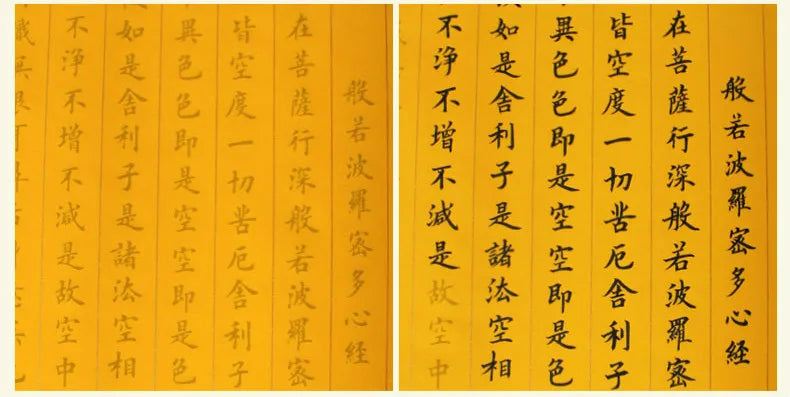 般若波羅密多心経
在菩薩行深般若波羅密
皆空度一切苦厄舎利子
異色色即是空空即是色
如是舎利子是諸法空相
不浄不増不減是故空中
般若波羅密多心経
在菩薩行深般若波羅密
皆空度一切苦厄舎利子
異色色即是空空即是色
如是舎利子是諸法空相
不浄不増不減是故空中